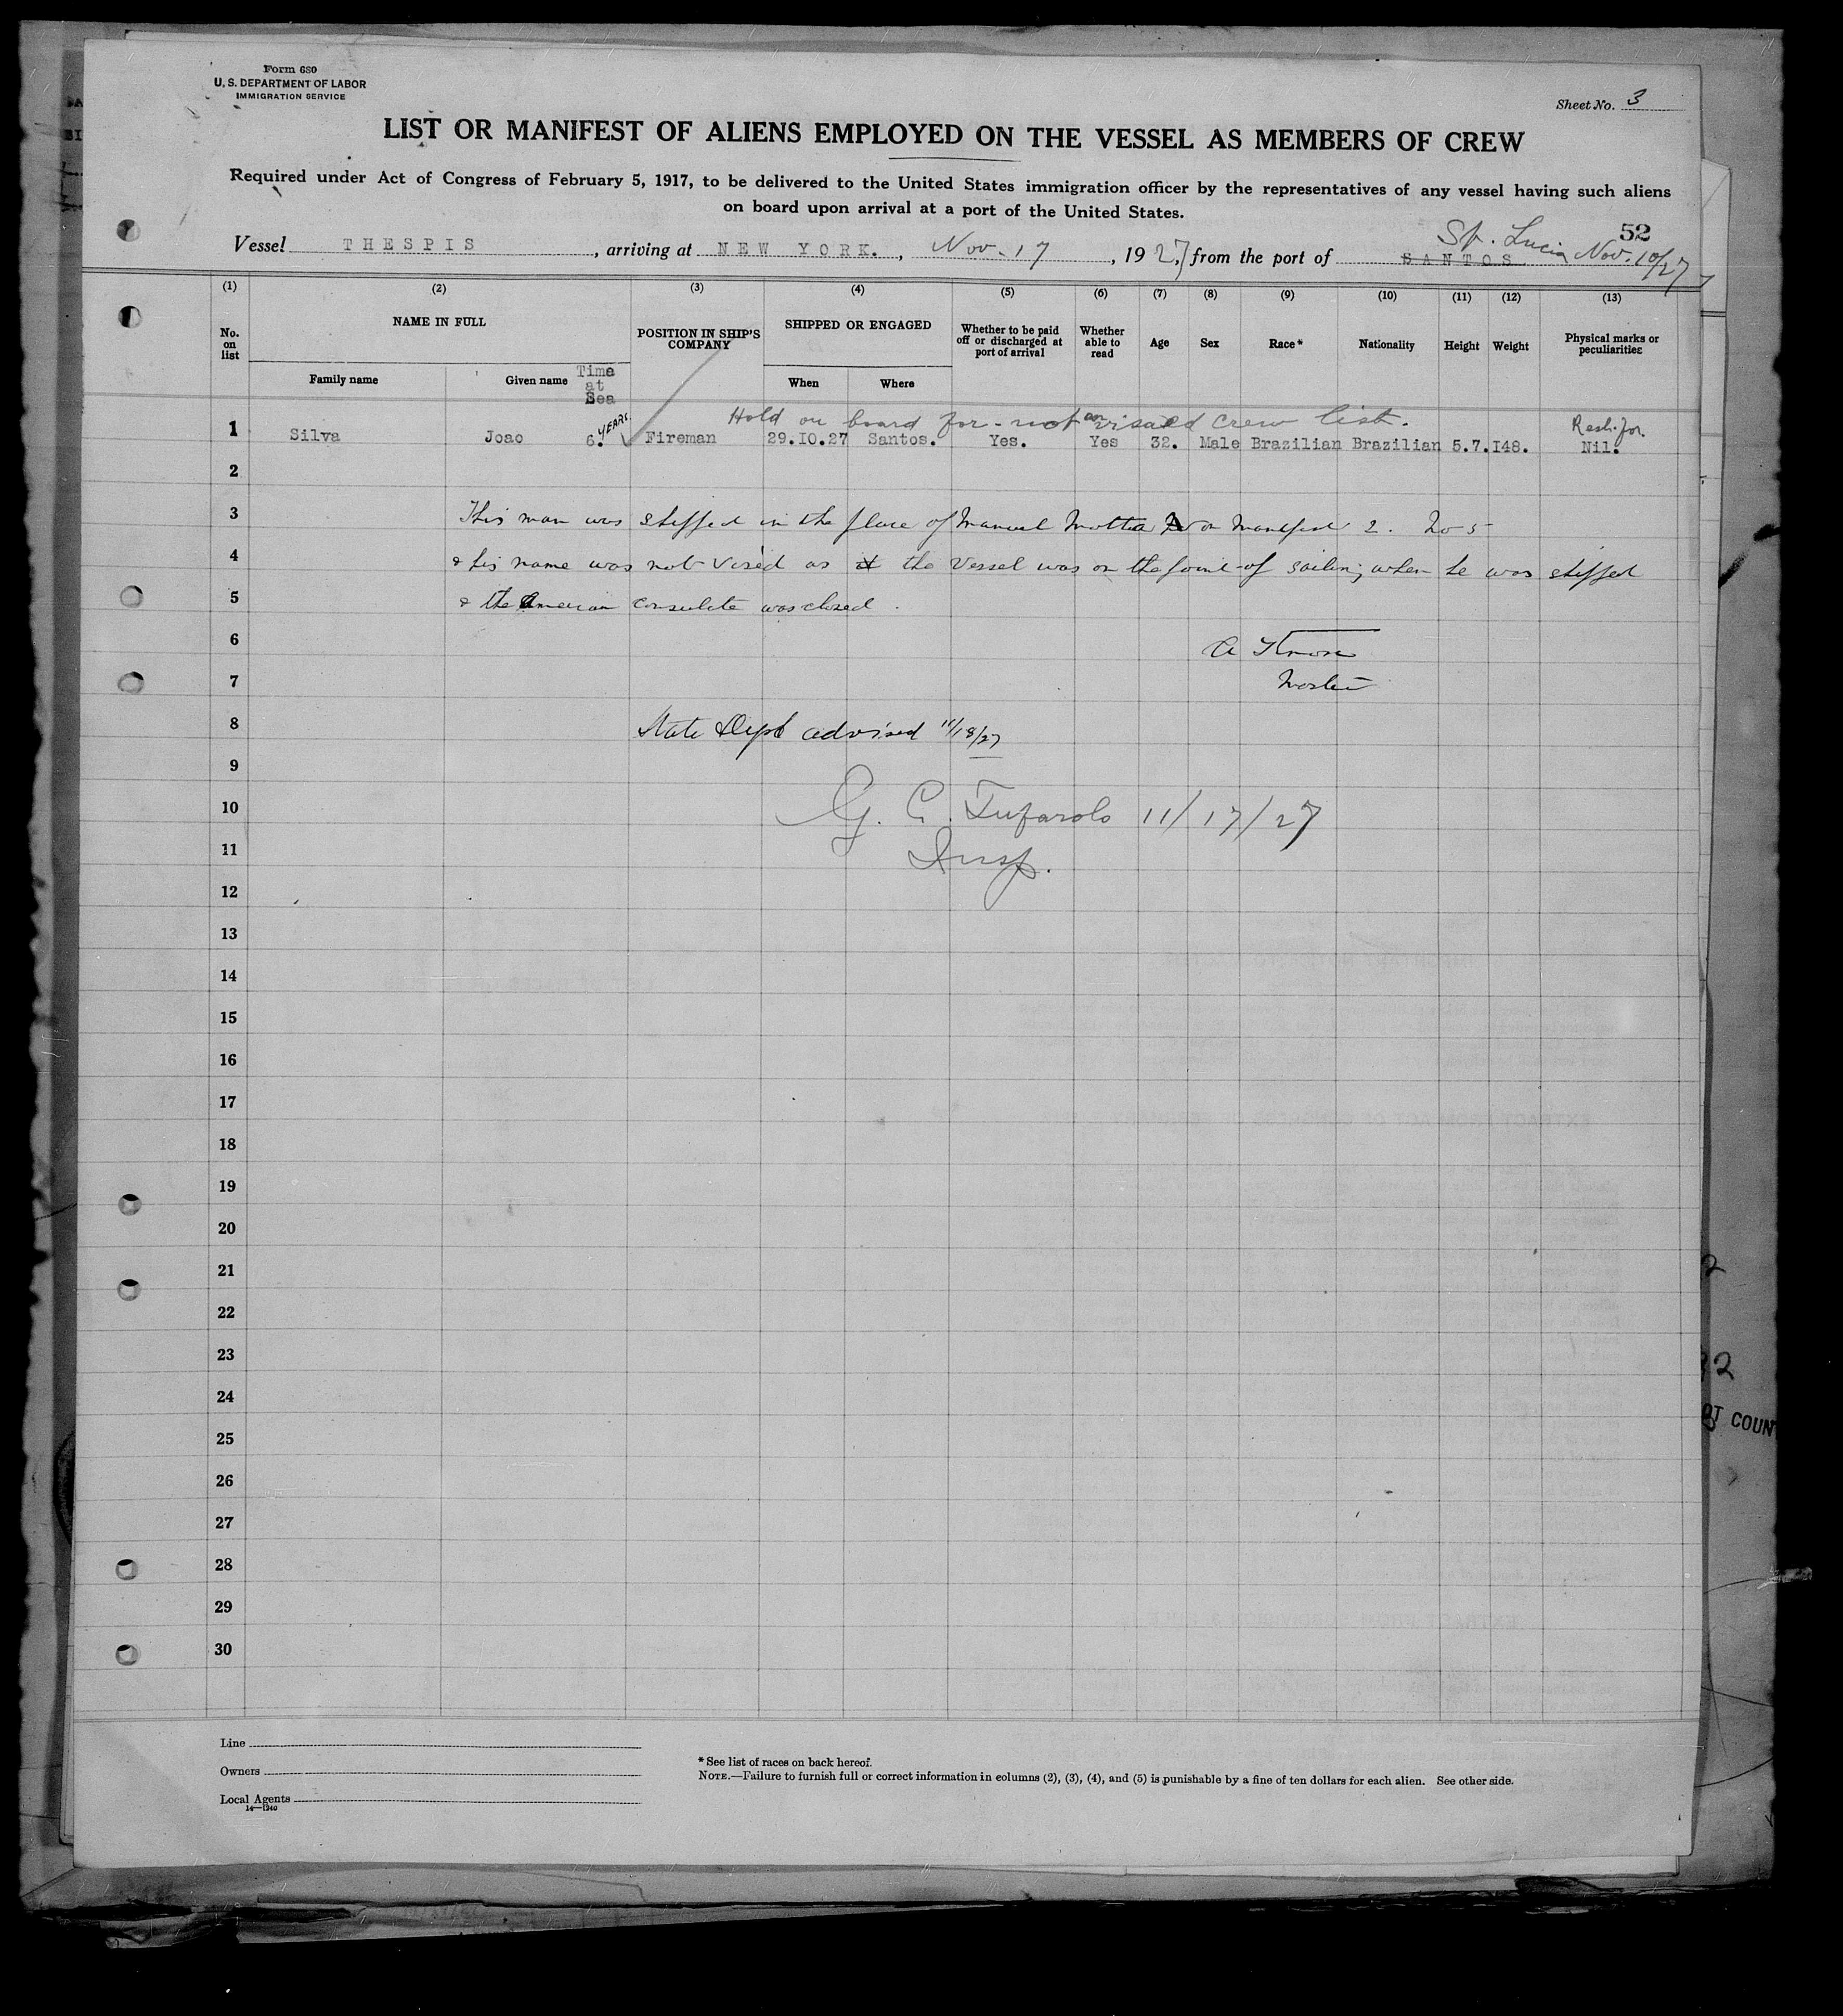 Form 680
U. S. DEPARTMENT OF LABOR
IMMIGRATION SERVICE
Sheet No. 3
LIST OR MANIFEST OF ALIENS EMPLOYED ON THE VESSEL AS MEMBERS OF CREW
Required under Act of Congress of February 5, 1917, to be delivered to the United States immigration officer by the representatives of any vessel having such aliens
on board upon arrival at a port of the United States.
52
St. Lucia Nov. 10/27
Vessel THESPIS, arriving at NEW YORK., Nov. 17, 1927, from the port of SANTOS
(1) (2) (3) (4) (5) (6) (7) (8) (9) (10) (11) (12) (13)
No. on list
NAME IN FULL
Family name
Given name
Time at Sea
POSITION IN SHIP'S COMPANY
SHIPPED OR ENGAGED
When
Where
Whether to be paid off or discharged at port of arrival
Whether able to read
Age
Sex
Race*
Nationality
Height
Weight
Physical marks or peculiarities
Hold on board for - not on visaed crew list.
1 Silva Joao 6. YEARS. Fireman 29.10.27 Santos. Yes. Yes 32. Male Brazilian Brazilian 5.7. 148. Nil.
2
3 This man was shipped in the place of Manuel Motta on Manifest 2. No 5
4 & his name was not vised as it the Vessel was on the point of sailing when he was shipped
5 & the American consulate was closed.
6 A
7 Master
8 State Dept advised 11/18/27
9
10 G. C. Tufarolo 11/17/27
11 Insp.
12
13
14
15
16
17
18
19
20
21
22
23
24
25
26
27
28
29
30
Line
Owners
Local Agents
14—1240
* See list of races on back hereof.
NOTE.—Failure to furnish full or correct information in columns (2), (3), (4), and (5) is punishable by a fine of ten dollars for each alien. See other side.
OT COUN